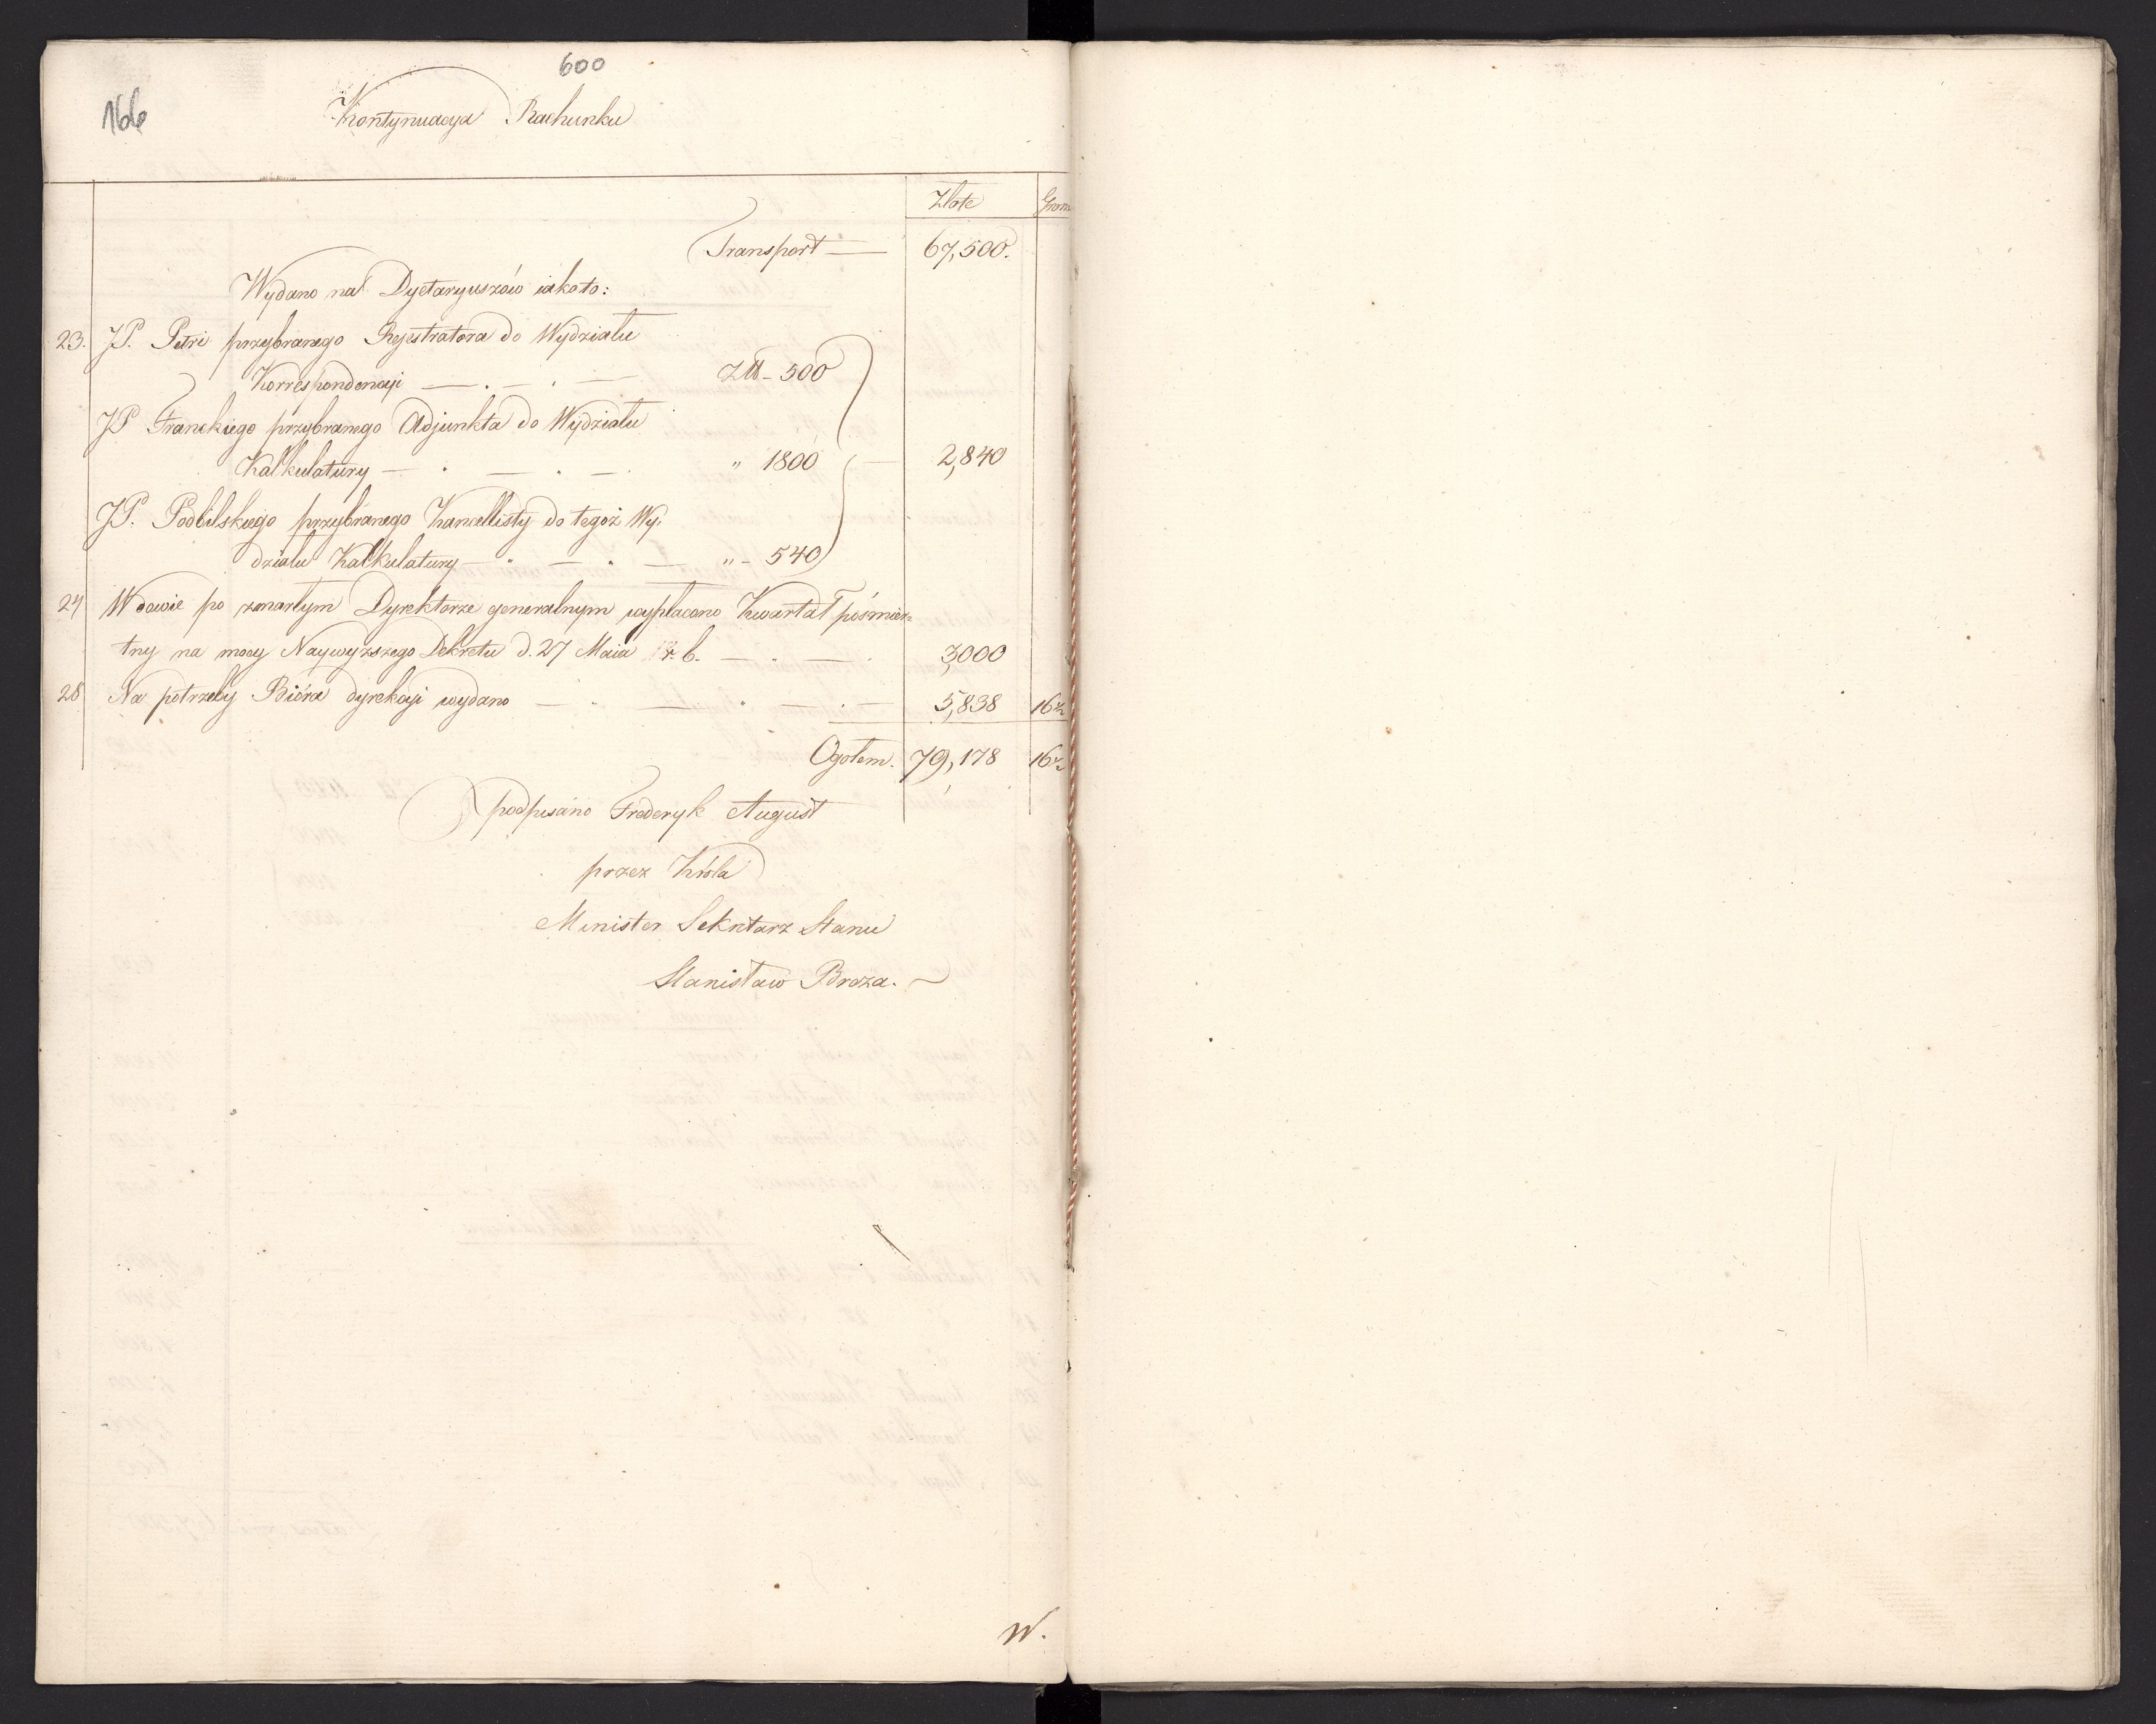 600
166
Kontynuacya Rachunku
Złote
Transport — 67,500.
Wydano na Dyetaryuszów iakoto:
23. JP. Petri przybranego Rejestratora do Wydziału
Korrespondencyi — . — . — Złł - 500
JP Franckiego przybranego Adjunkta do Wydziału
Kalkulatury — . — . — . „ 1800 — 2,840
JP. Podbilskiego przybranego Kancellisty do tegoż Wy.
działu Kalkulatury — . — . — „ - 540
24 Wdowie po zmarłym Dyrektorze generalnym wypłacono Kwartał pośmier=
tny na mocy Naywyższego Dekretu d. 27 Maia r. b. — . — . 3,000
25 Na potrzeby Bióra dyrekcyi wydano — . — . — . — 5,838 16½
Ogołem. 79,178 16½
podpisano Frederyk August
przez Króla
Minister Sekretarz Stanu
Stanisław Breza.
W.